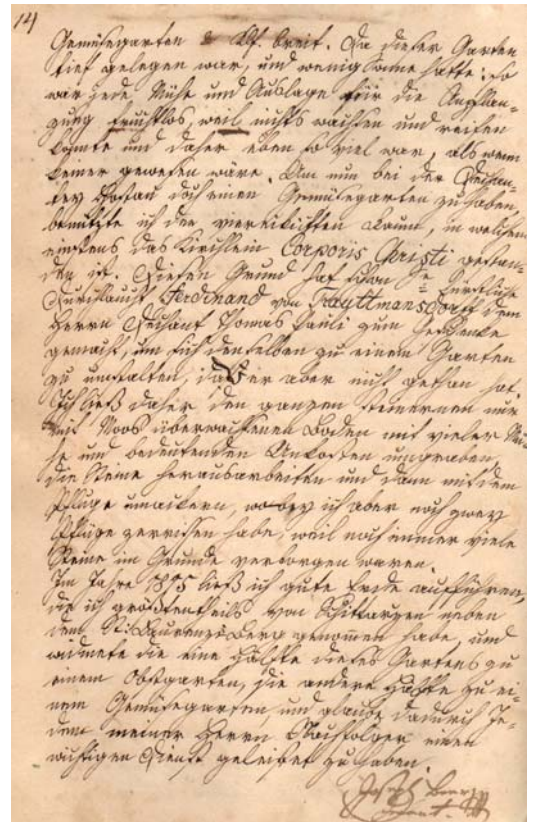 14)
Gemüsegarten 2 Klf. breit. Da dieser Garten
tief gelegen war, und wenig Sonne hatte: so
war jede Mühe und Auslage für die Anpflan-
zung fruchtlos, weil nichts wachsen und reifen
konnte und daher eben so viel war, als wenn
keiner gewesen wäre. Um nun bei der Dechan-
tey doch einen Gemüsegarten zu haben,
benützte ich den viereckichten Raum, in welchem
einstens das Kirchlein Corporis Christi gestan-
den ist. Diesen Grund hat schon Se fürstliche
Durchlaucht Ferdinand von Trauttmansdorff dem
Herrn Dechant Thomas Pauli zum Geschenke
gemacht, um sich denselben zu einem Garten
zu umstalten, das er aber nicht gethan hat.
Ich ließ daher den ganzen steinernen nur
mit Moos überwachsenen Boden mit vieler Mü-
he und bedeutenden Unkosten umgraben,
die Steine herausarbeiten und dann mit dem
Pfluge umackern, wobey ich aber noch zwey
Pflüge zerrissen habe, weil noch immer viele
Steine im Grunde verborgen waren.
Im Jahre 1835 ließ ich gute Erde aufführen,
die ich größtentheils von Schittarzen neben
dem St: Laurenziberg genommen habe, und
widmete die eine Hälfte dieses Gartens zu
einem Obstgarten, die andere Hälfte zu ei-
nem Gemüsegarten, und glaube dadurch Je-
dem meiner Herrn Nachfolger einen
wichtigen Dienst geleistet zu haben.
Joseph Beer
Dechant.